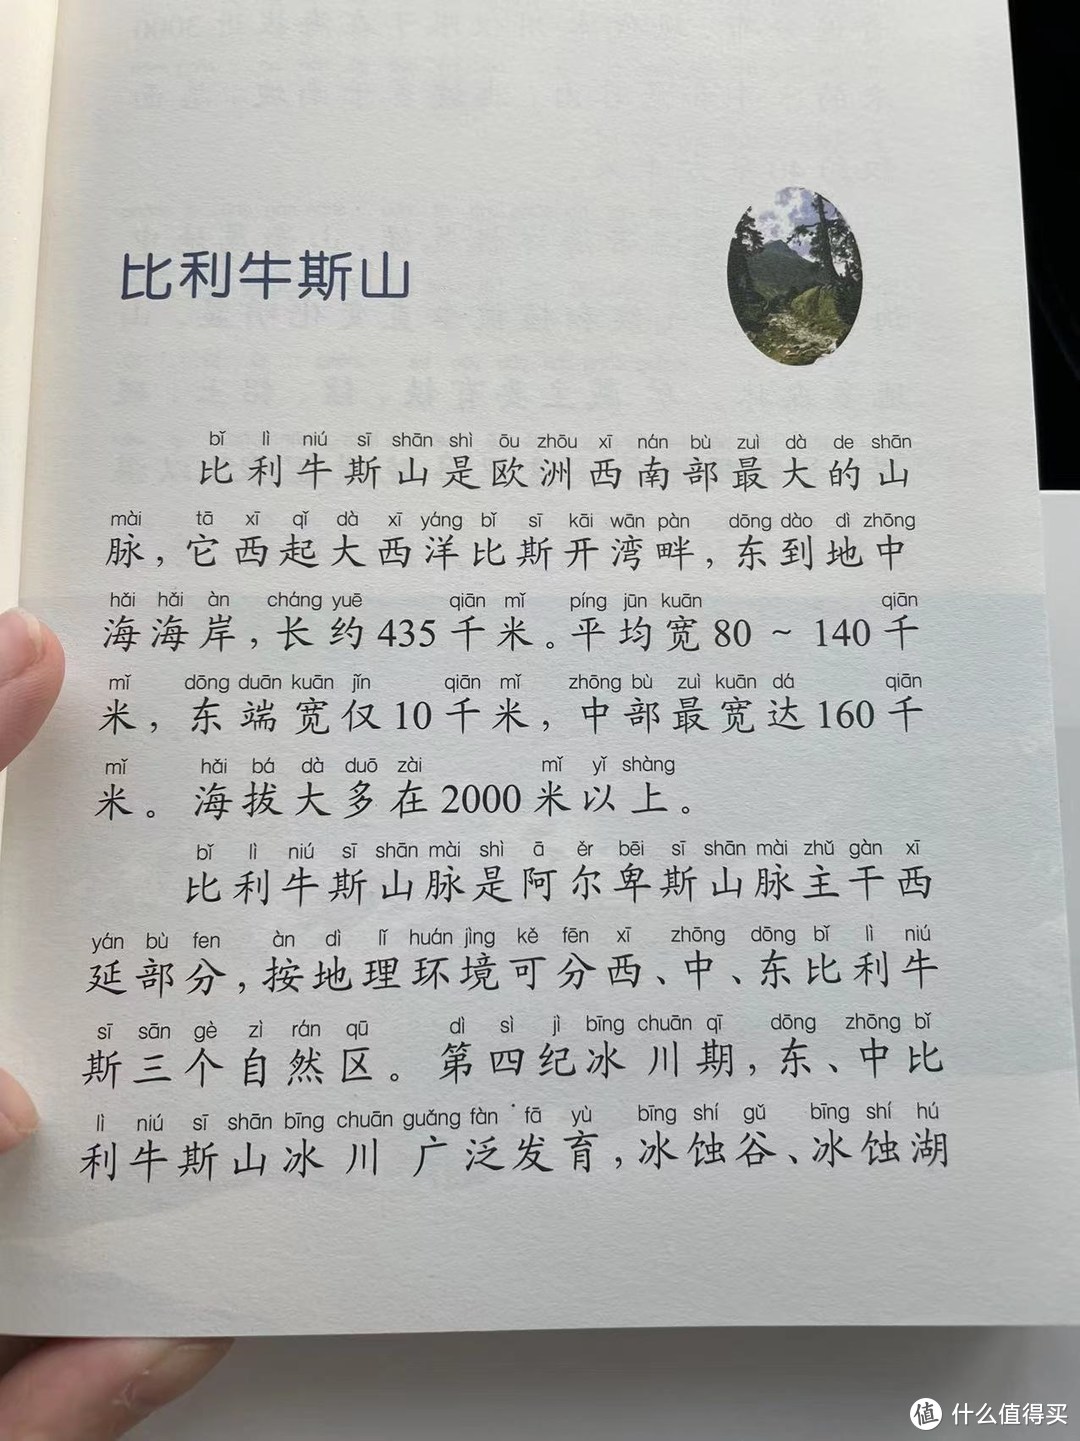 比利牛斯山
bǐ lì niú sī shān shì ōu zhōu xī nán bù zuì dà de shān
比利牛斯山是欧洲西南部最大的山
mài tā xī qǐ dà xī yáng bǐ sī kāi wān pàn dōng dào dì zhōng
脉，它西起大西洋比斯开湾畔，东到地中
hǎi hǎi àn cháng yuē qiān mǐ píng jūn kuān qiān
海海岸，长约435千米。平均宽80～140千
mǐ dōng duān kuān jǐn qiān mǐ zhōng bù zuì kuān dá qiān
米，东端宽仅10千米，中部最宽达160千
mǐ hǎi bá dà duō zài mǐ yǐ shàng
米。海拔大多在2000米以上。
bǐ lì niú sī shān mài shì ā ěr bēi sī shān mài zhǔ gàn xī
比利牛斯山脉是阿尔卑斯山脉主干西
yán bù fen àn dì lǐ huán jìng kě fēn xī zhōng dōng bǐ lì niú
延部分，按地理环境可分西、中、东比利牛
sī sān gè zì rán qū dì sì jì bīng chuān qī dōng zhōng bǐ
斯三个自然区。第四纪冰川期，东、中比
lì niú sī shān bīng chuān guǎng fàn fā yù bīng shí gǔ bīng shí hú
利牛斯山冰川广泛发育，冰蚀谷、冰蚀湖
值 什么值得买